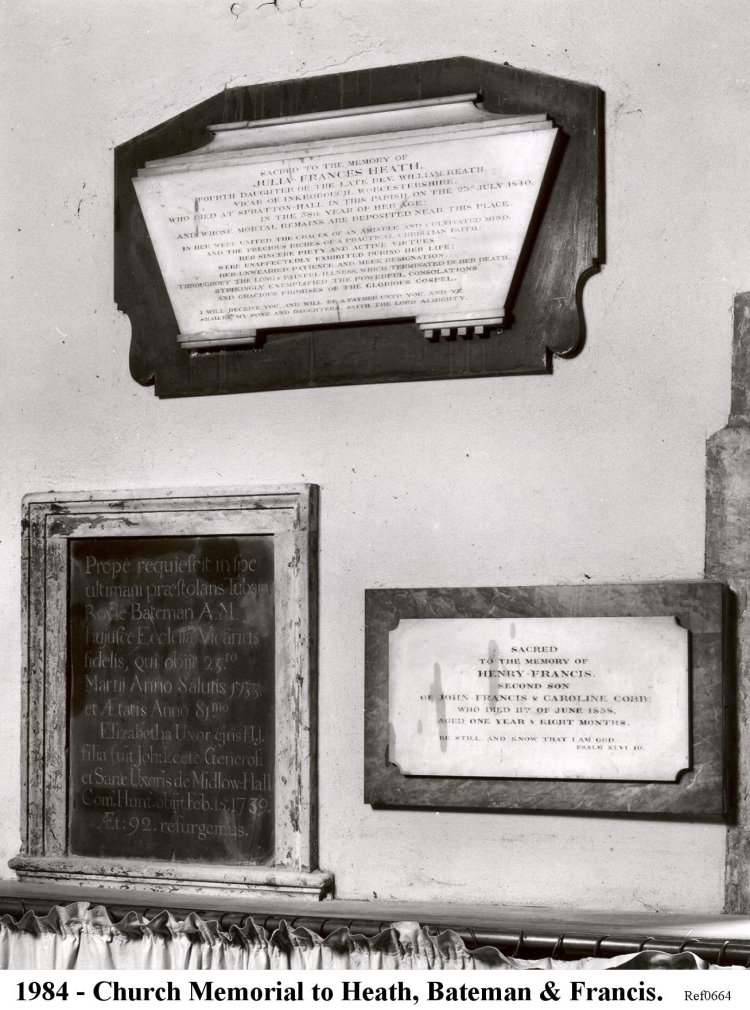 SACRED TO THE MEMORY OF
JULIA FRANCES HEATH,
FOURTH DAUGHTER OF THE LATE REV. WILLIAM HEATH
VICAR OF INKBOROUGH, WORCESTERSHIRE.
WHO DIED AT SPRATTON-HALL IN THIS PARISH, ON THE 23RD JULY 1840,
IN THE 38TH YEAR OF HER AGE;
AND WHOSE MORTAL REMAINS ARE DEPOSITED NEAR THIS PLACE;
IN HER WERE UNITED THE GRACES OF AN AMIABLE AND CULTIVATED MIND,
AND THE PRECIOUS RICHES OF A PRACTICAL CHRISTIAN FAITH;
HER SINCERE PIETY AND ACTIVE VIRTUES
WERE UNAFFECTEDLY EXHIBITED DURING HER LIFE;
HER UNWEARIED PATIENCE AND MEEK RESIGNATION,
THROUGHOUT THE LONG & PAINFUL ILLNESS WHICH TERMINATED IN HER DEATH,
STRIKINGLY EXEMPLIFIED THE POWERFUL CONSOLATIONS
AND GRACIOUS PROMISES OF THE GLORIOUS GOSPEL.
I WILL RECEIVE YOU, AND WILL BE A FATHER UNTO YOU, AND YE
SHALL BE MY SONS AND DAUGHTERS, SAITH THE LORD ALMIGHTY.
Prope requiescit in spe
ultimam præstolans Tubam
Royle Bateman A.M.
hujusce Ecclesiæ Vicarius
fidelis, qui obijt 25.to
Martij Anno Salutis
et Ætatis Anno 81.mo
Elizabetha Uxor ejus H.J.
filia fuit Joh: Leete Generosi
et Saræ Uxoris de Midlow-Hall
Com: Hunt. obijt Feb. 15. 1739.
Æt: 92. resurgemus.
SACRED
TO THE MEMORY OF
HENRY-FRANCIS.
SECOND SON
OF JOHN-FRANCIS & CAROLINE COBB:
WHO DIED 11TH OF JUNE 1838,
AGED ONE YEAR & EIGHT MONTHS.
BE STILL AND KNOW THAT I AM GOD.
PSALM XLVI 10.
1984 - Church Memorial to Heath, Bateman & Francis. Ref0664